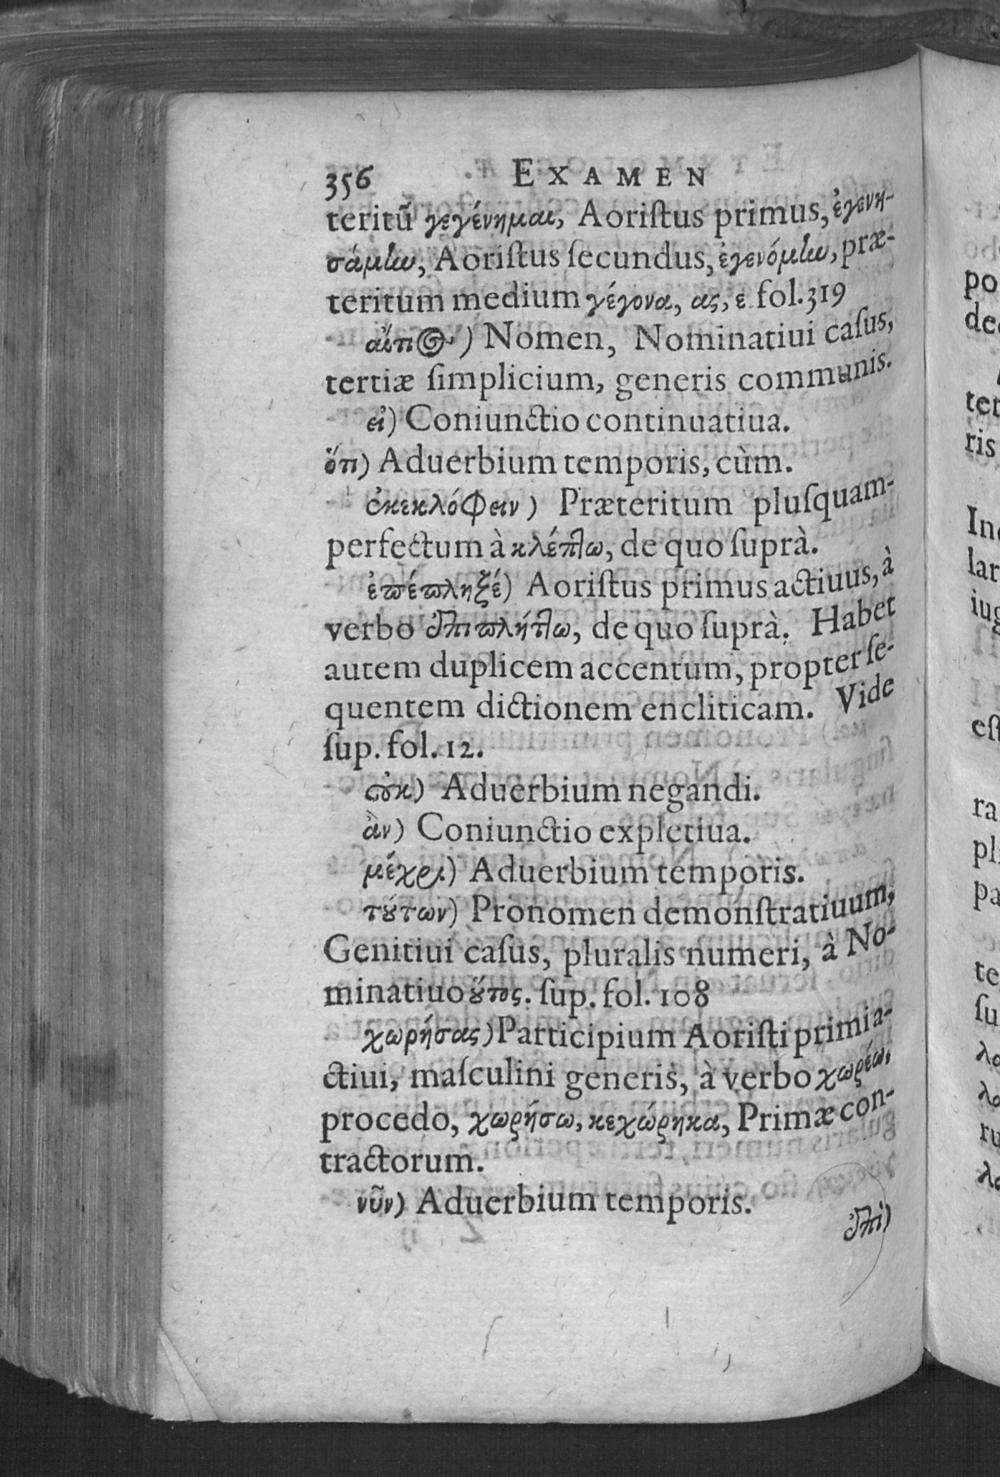 356 EXAMEN
teritũ γεγένημαι, Aoriſtus primus, ἐγενη-
σάμην, Aoriſtus ſecundus, ἐγενόμην, præ-
teritum medium γέγονα, ας, ε fol. 319
αἴτιος) Nomen, Nominatiui caſus,
tertiæ ſimplicium, generis communis.
εἰ) Coniunctio continuatiua.
ὅτι) Aduerbium temporis, cùm.
ἐκεκλόφειν) Præteritum pluſquam-
perfectum à κλέπτω, de quo ſuprà.
ἐπέπληξέ) Aoriſtus primus actiuus, à
verbo ἐπιπλήττω, de quo ſuprà. Habet
autem duplicem accentum, propter ſe-
quentem dictionem encliticam. Vide
ſup. fol. 12.
οὐκ) Aduerbium negandi.
ἂν) Coniunctio expletiua.
μέχρι) Aduerbium temporis.
τούτων) Pronomen demonſtratiuum,
Genitiui caſus, pluralis numeri, à No-
minatiuo οὗτος. ſup. fol. 108
χωρήσας) Participium Aoriſti primi a-
ctiui, maſculini generis, à verbo χωρέω,
procedo, χωρήσω, κεχώρηκα, Primæ con-
tractorum.
νῦν) Aduerbium temporis.
ἐπὶ)
po
dec
ter
ris
Ind
lar
iug
eſt
ra
pl
pa
te
ſu
λο
λο
ru
λο